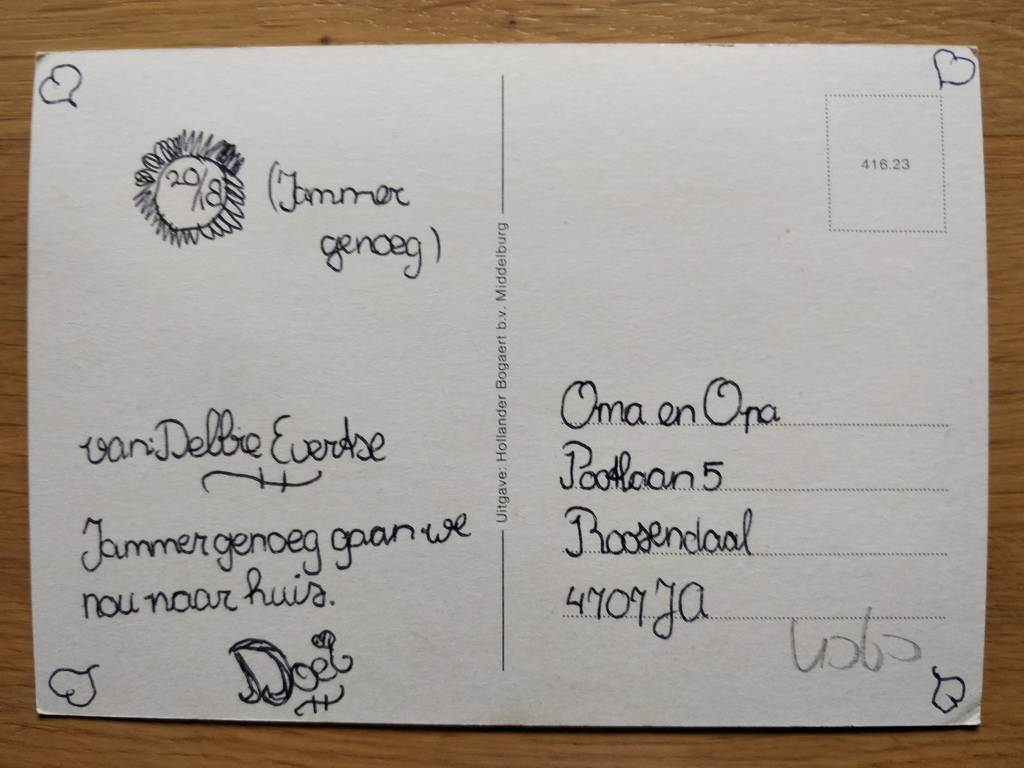 20/8
(Jammer
genoeg)
van: Debbie Evertse
Jammer genoeg gaan we
nou naar huis.
Doei
Uitgave: Hollander Bogaert b.v. Middelburg
416.23
Oma en Opa
Pootlaan 5
Roosendaal
4707 JA